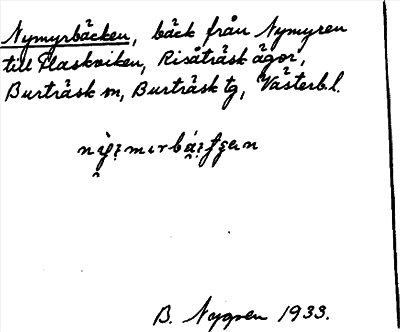 Nymyrbäcken, bäck från Nymyren
till Flaskviken, Risåträsk ägor,
Burträsk sn, Burträsk tg, Västerb.l.
B. Nygren 1933.